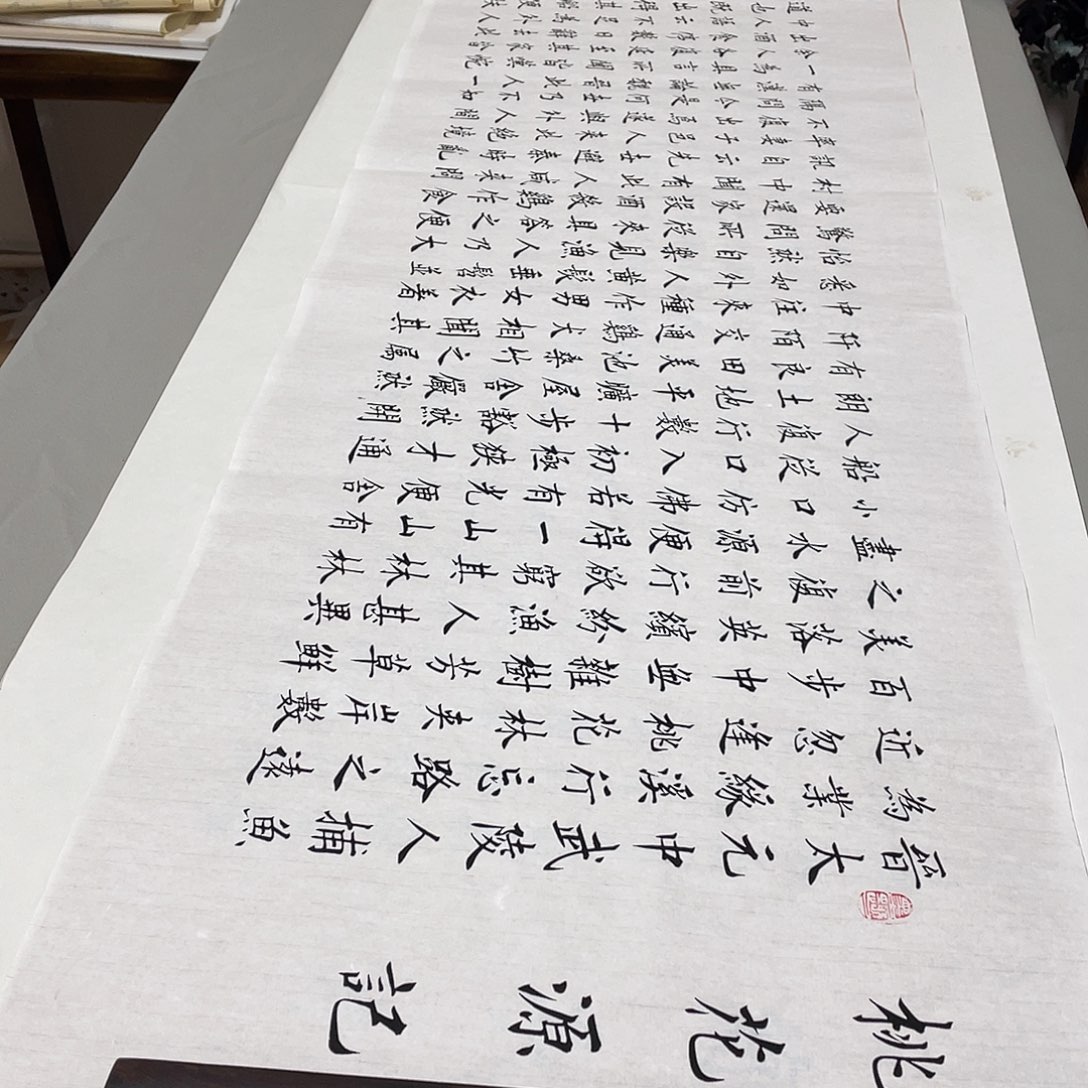 桃花源記
晉太元中武陵人捕魚
為業緣溪行忘路之遠
近忽逢桃花林夾岸數
百步中無雜樹芳草鮮
美落英繽紛漁人甚異
之復前行欲窮其林林
盡水源便得一山山有
小口仿佛若有光便舍
船從口入初極狹才通
人復行數十步豁然開
朗土地平曠屋舍儼然
有良田美池桑竹之屬
阡陌交通鷄犬相聞其
中往來種作男女衣著
悉如外人黃髮垂髫並
怡然自樂見漁人乃大
驚問所從來具答之便
要還家設酒殺鷄作食
村中聞有此人咸來問
訊自云先世避秦時亂
率妻子邑人來此絕境
不復出焉遂與外人間
隔問今是何世乃不知
有漢無論魏晉此人一
一為具言所聞皆歎惋
余人各復延至其家皆
出酒食停數日辭去此
中人語云不足為外人
道也既出得其船便扶